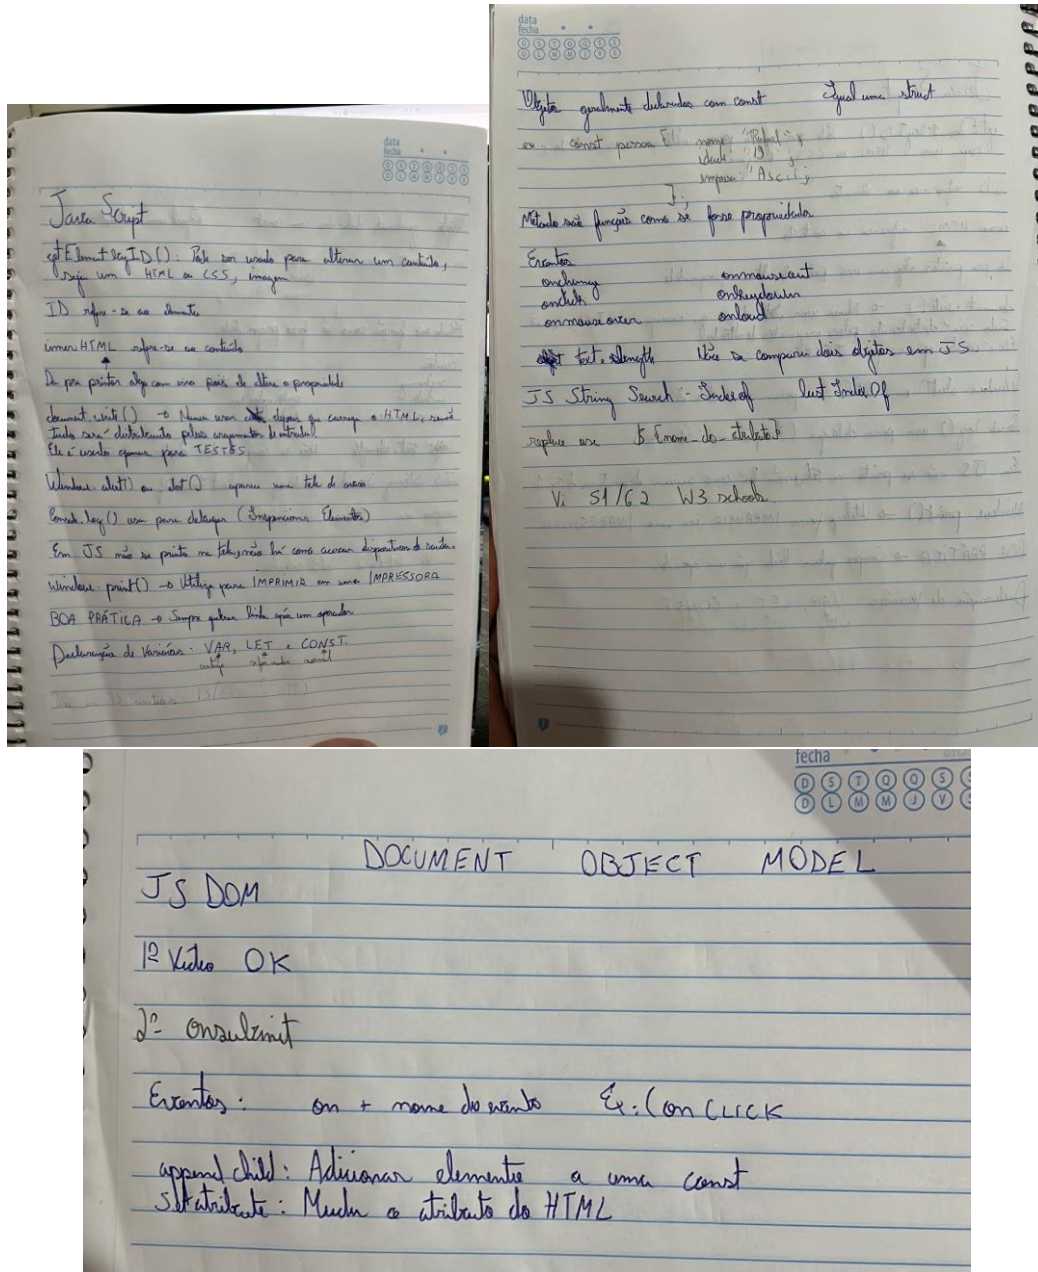 data
fecha
D S T Q Q S S
D L M M J V S
Java Script
getElementbyID(): Pode ser usado para alterar um conteúdo,
seja um HTML ou CSS, imagem
ID refere-se ao elemento
innerHTML refere-se ao conteúdo
Da pra printar algo com isso pois ele altera a propriedade
document.write() → Nunca usar depois que carrega o HTML, senão
tudo será pelos de entrada.
Ele é usado apenas para TESTES
Window.alert() ou alert() aparece uma tela de aviso
Console.log() usa para debugar (Inspencionar Elementos)
Em JS não se printa na tela, não há como acessar dispositivos de saída.
Window.print() → Utiliza para IMPRIMIR em uma IMPRESSORA
BOA PRÁTICA → Sempre quebrar linha após um operador
Declaração de Variáveis: VAR, LET e CONST.
antigo normal
data
fecha
D S T Q Q S S
D L M M J V S
Objetos geralmente declarados com const Igual uma struct
ex const pessoa nome: "Rafael";
idade: "19";
empresa: "Ascii";
};
Metodo são funções como se fosse propriedades
Eventos
onchange onmouseout
onclick onkeydown
onmouseover onload
text.length Não se compara dois objetos em JS.
JS String Search - Indexof last IndexOf
replace use ${nome_do_atributo}
Vi 51/62 W3 schools
fecha
D S T Q Q S S
D L M M J V
DOCUMENT OBJECT MODEL
JS DOM
1º Video OK
2º- onsubmit
Eventos: on + nome do evento Ex: (onCLICK
append child: Adicionar elemento a uma const
Setatribute: Mudar o atributo do HTML